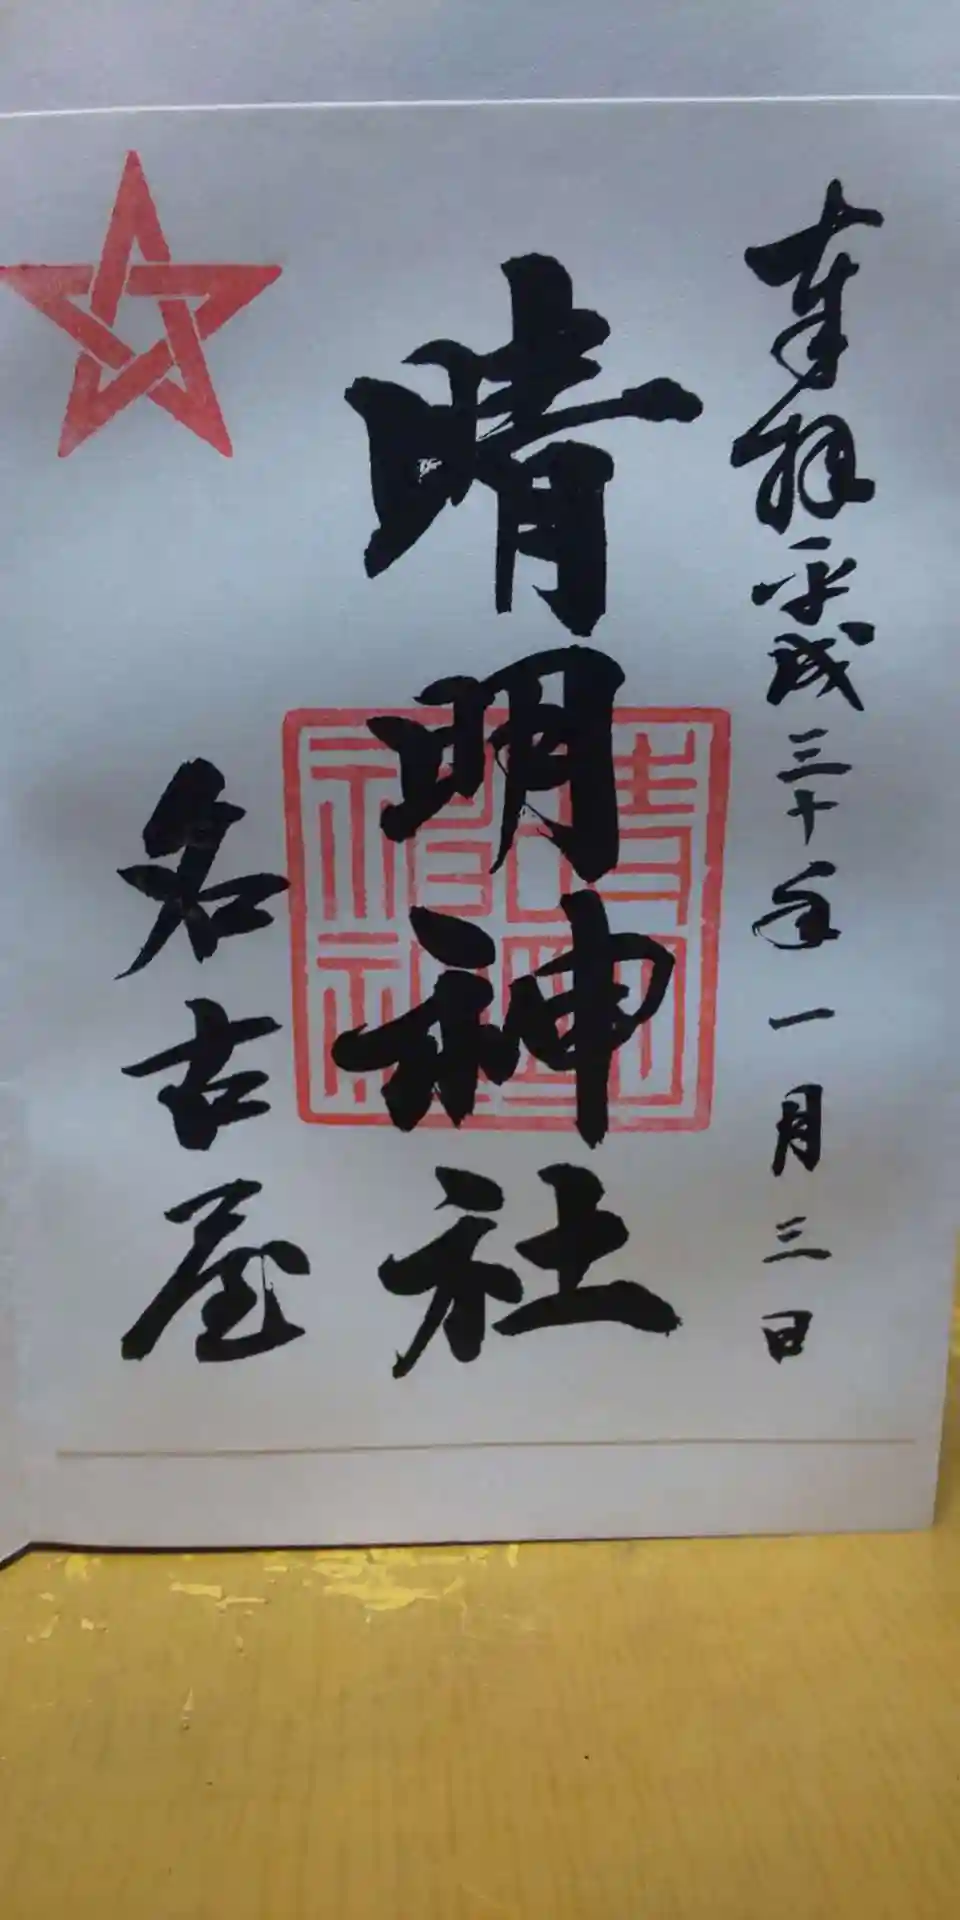 奉拝 平成三十年一月三日
晴明神社
名古屋
晴明
神社